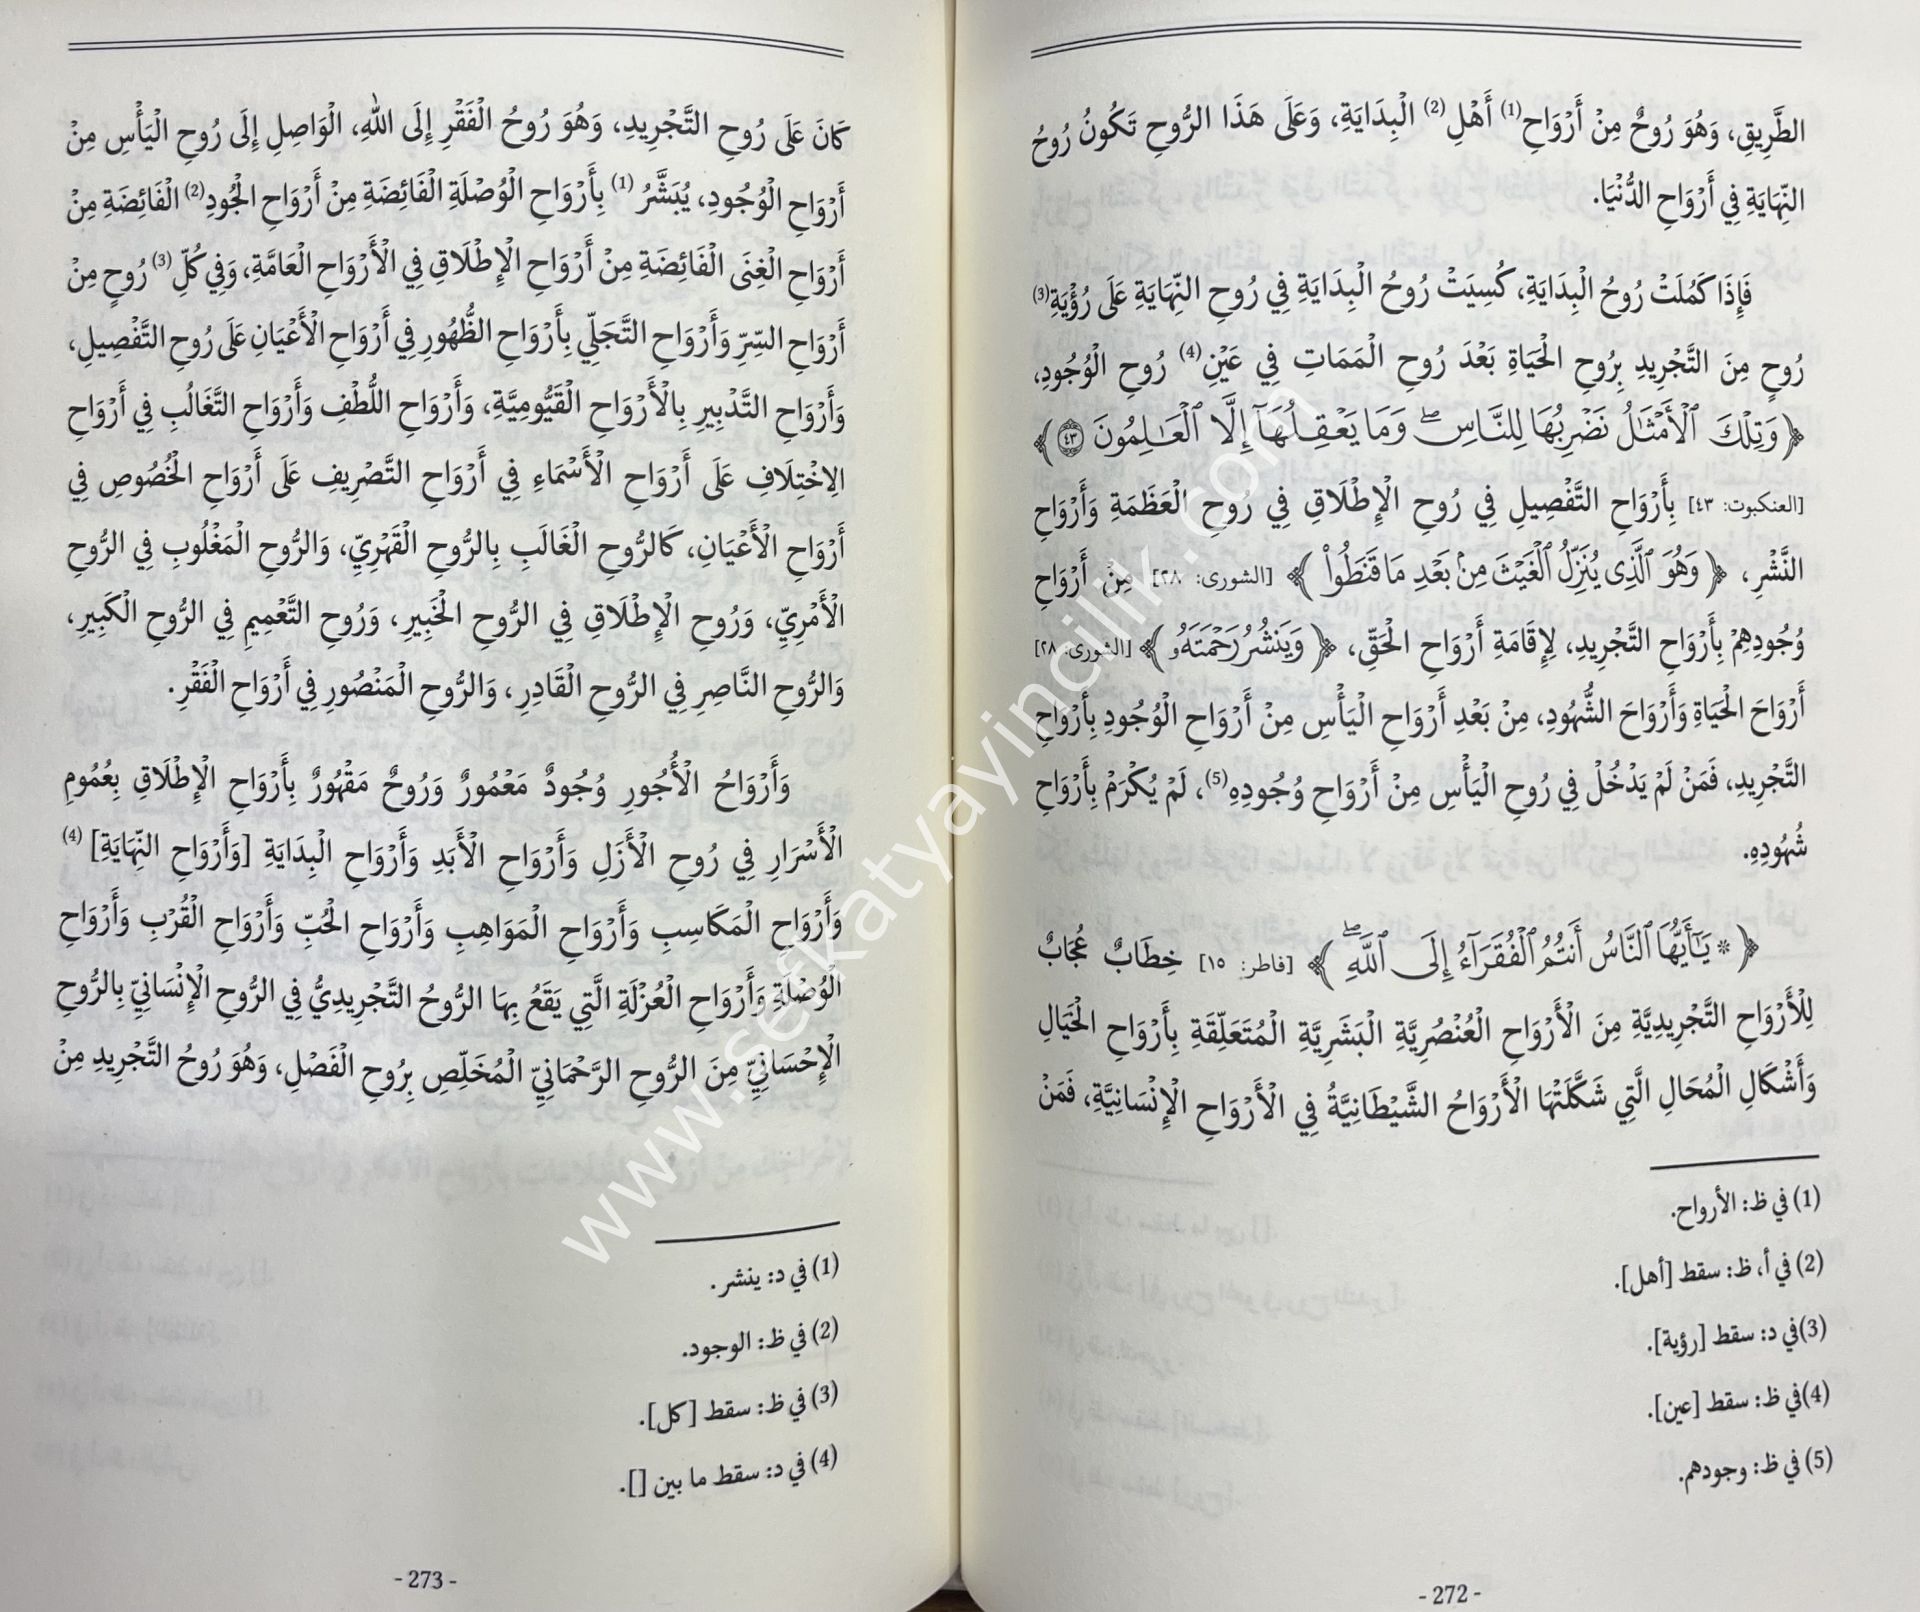 الطَّرِيقِ، وَهُوَ رُوحٌ مِنْ أَرْوَاحِ(1) أَهْلِ(2) الْبِدَايَةِ، وَعَلَى هَذَا الرُّوحِ تَكُونُ رُوحُ
النِّهَايَةِ فِي أَرْوَاحِ الدُّنْيَا.
فَإِذَا كَمُلَتْ رُوحُ الْبِدَايَةِ، كُسِيَتْ رُوحُ الْبِدَايَةِ فِي رُوحِ النِّهَايَةِ عَلَى رُؤْيَةِ(3)
رُوحٍ مِنَ التَّجْرِيدِ بِرُوحِ الْحَيَاةِ بَعْدَ رُوحِ الْمَمَاتِ فِي عَيْنِ(4) رُوحِ الْوُجُودِ،
﴿وَتِلْكَ ٱلْأَمْثَٰلُ نَضْرِبُهَا لِلنَّاسِۖ وَمَا يَعْقِلُهَآ إِلَّا ٱلْعَٰلِمُونَ ٤٣﴾
[العنكبوت: ٤٣] بِأَرْوَاحِ التَّفْصِيلِ فِي رُوحِ الْإِطْلَاقِ فِي رُوحِ الْعَظَمَةِ وَأَرْوَاحِ
النَّشْرِ، ﴿وَهُوَ ٱلَّذِى يُنَزِّلُ ٱلْغَيْثَ مِنۢ بَعْدِ مَا قَنَطُوا۟﴾ [الشورى: ٢٨] مِنْ أَرْوَاحِ
وُجُودِهِمْ بِأَرْوَاحِ التَّجْرِيدِ، لِإِقَامَةِ أَرْوَاحِ الْحَقِّ، ﴿وَيَنشُرُ رَحْمَتَهُۥ﴾ [الشورى: ٢٨]
أَرْوَاحَ الْحَيَاةِ وَأَرْوَاحَ الشُّهُودِ، مِنْ بَعْدِ أَرْوَاحِ الْيَأْسِ مِنْ أَرْوَاحِ الْوُجُودِ بِأَرْوَاحِ
التَّجْرِيدِ، فَمَنْ لَمْ يَدْخُلْ فِي رُوحِ الْيَأْسِ مِنْ أَرْوَاحِ وُجُودِهِ(5)، لَمْ يُكْرَمْ بِأَرْوَاحِ
شُهُودِهِ.
﴿۞ يَٰٓأَيُّهَا ٱلنَّاسُ أَنتُمُ ٱلْفُقَرَآءُ إِلَى ٱللَّهِۖ﴾ [فاطر: ١٥] خِطَابٌ عُجَابٌ
لِلْأَرْوَاحِ التَّجْرِيدِيَّةِ مِنَ الْأَرْوَاحِ الْعُنْصُرِيَّةِ الْبَشَرِيَّةِ الْمُتَعَلِّقَةِ بِأَرْوَاحِ الْخَيَالِ
وَأَشْكَالِ الْمُحَالِ الَّتِي شَكَّلَتْهَا الْأَرْوَاحُ الشَّيْطَانِيَّةُ فِي الْأَرْوَاحِ الْإِنْسَانِيَّةِ، فَمَنْ
(1) في ظ: الأرواح.
(2) في أ، ظ: سقط [أهل].
(3)في د: سقط [رؤية].
(4)في ظ: سقط [عين].
(5) في ظ: وجودهم.
- 272 -
كَانَ عَلَى رُوحِ التَّجْرِيدِ، وَهُوَ رُوحُ الْفَقْرِ إِلَى اللهِ، الْوَاصِلِ إِلَى رُوحِ الْيَأْسِ مِنْ
أَرْوَاحِ الْوُجُودِ، يُبَشَّرُ(1) بِأَرْوَاحِ الْوُصْلَةِ الْفَائِضَةِ مِنْ أَرْوَاحِ الْجُودِ(2) الْفَائِضَةِ مِنْ
أَرْوَاحِ الْغِنَى الْفَائِضَةِ مِنْ أَرْوَاحِ الْإِطْلَاقِ فِي الْأَرْوَاحِ الْعَامَّةِ، وَفِي كُلِّ(3) رُوحٍ مِنْ
أَرْوَاحِ السِّرِّ وَأَرْوَاحِ التَّجَلِّي بِأَرْوَاحِ الظُّهُورِ فِي أَرْوَاحِ الْأَعْيَانِ عَلَى رُوحِ التَّفْصِيلِ،
وَأَرْوَاحِ التَّدْبِيرِ بِالْأَرْوَاحِ الْقَيُّومِيَّةِ، وَأَرْوَاحِ اللُّطْفِ وَأَرْوَاحِ التَّغَالُبِ فِي أَرْوَاحِ
الِاخْتِلَافِ عَلَى أَرْوَاحِ الْأَسْمَاءِ فِي أَرْوَاحِ التَّصْرِيفِ عَلَى أَرْوَاحِ الْخُصُوصِ فِي
أَرْوَاحِ الْأَعْيَانِ، كَالرُّوحِ الْغَالَبِ بِالرُّوحِ الْقَهْرِيِّ، وَالرُّوحِ الْمَغْلُوبِ فِي الرُّوحِ
الْأَمْرِيِّ، وَرُوحِ الْإِطْلَاقِ فِي الرُّوحِ الْخَبِيرِ، وَرُوحِ التَّعْمِيمِ فِي الرُّوحِ الْكَبِيرِ،
وَالرُّوحِ النَّاصِرِ فِي الرُّوحِ الْقَادِرِ، وَالرُّوحِ الْمَنْصُورِ فِي أَرْوَاحِ الْفَقْرِ.
وَأَرْوَاحُ الْأُجُورِ وُجُودٌ مَعْمُورٌ وَرُوحٌ مَقْهُورٌ بِأَرْوَاحِ الْإِطْلَاقِ بِعُمُومِ
الْأَسْرَارِ فِي رُوحِ الْأَزَلِ وَأَرْوَاحِ الْأَبَدِ وَأَرْوَاحِ الْبِدَايَةِ [وَأَرْوَاحِ النِّهَايَةِ](4)
وَأَرْوَاحِ الْمَكَاسِبِ وَأَرْوَاحِ الْمَوَاهِبِ وَأَرْوَاحِ الْحُبِّ وَأَرْوَاحِ الْقُرْبِ وَأَرْوَاحِ
الْوُصْلَةِ وَأَرْوَاحِ الْعُزْلَةِ الَّتِي يَقَعُ بِهَا الرُّوحُ التَّجْرِيدِيُّ فِي الرُّوحِ الْإِنْسَانِيِّ بِالرُّوحِ
الْإِحْسَانِيِّ مِنَ الرُّوحِ الرَّحْمَانِيِّ الْمُخَلِّصِ بِرُوحِ الْفَضْلِ، وَهُوَ رُوحُ التَّجْرِيدِ مِنْ
(1) في د: ينشر.
(2) في ظ: الوجود.
(3) في ظ: سقط [كل].
(4) في د: سقط ما بين [].
- 273 -
www.seckatyayincilik.com